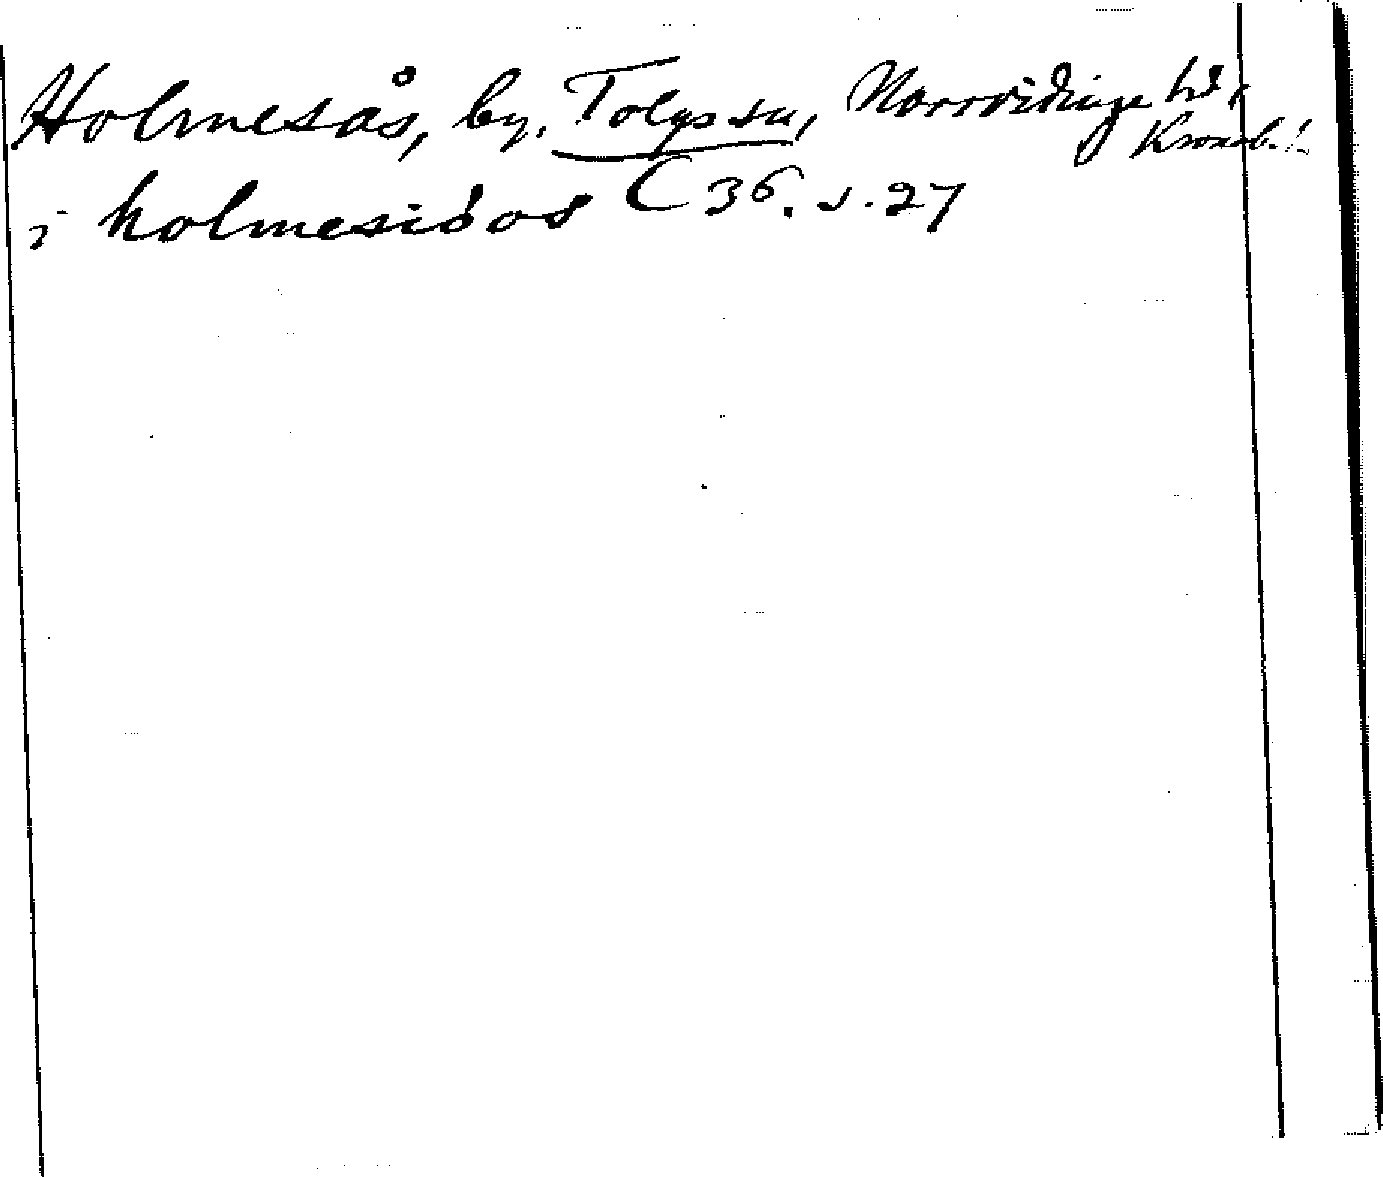 Holmesås, by, Tolgs sn, Norrvidinge hd,
Kronob. l.
i holmesidos C 36. s. 27